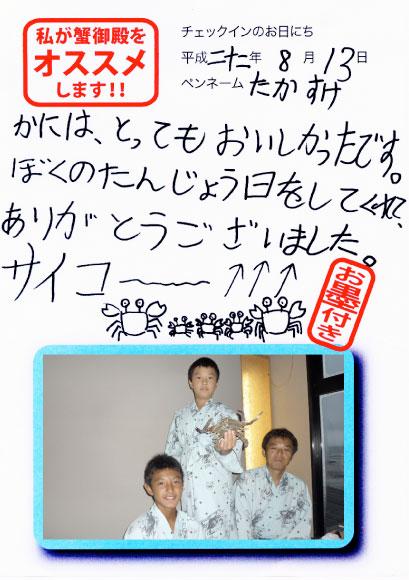 私が蟹御殿を
オススメ
します!!
チェックインのお日にち
平成二十二年 8月13日
ペンネーム たかすけ
かには、とってもおいしかったです。
ぼくのたんじょう日をしてくれて、
ありがとうございました。
サイコ〜〜〜↑↑↑
お墨付き